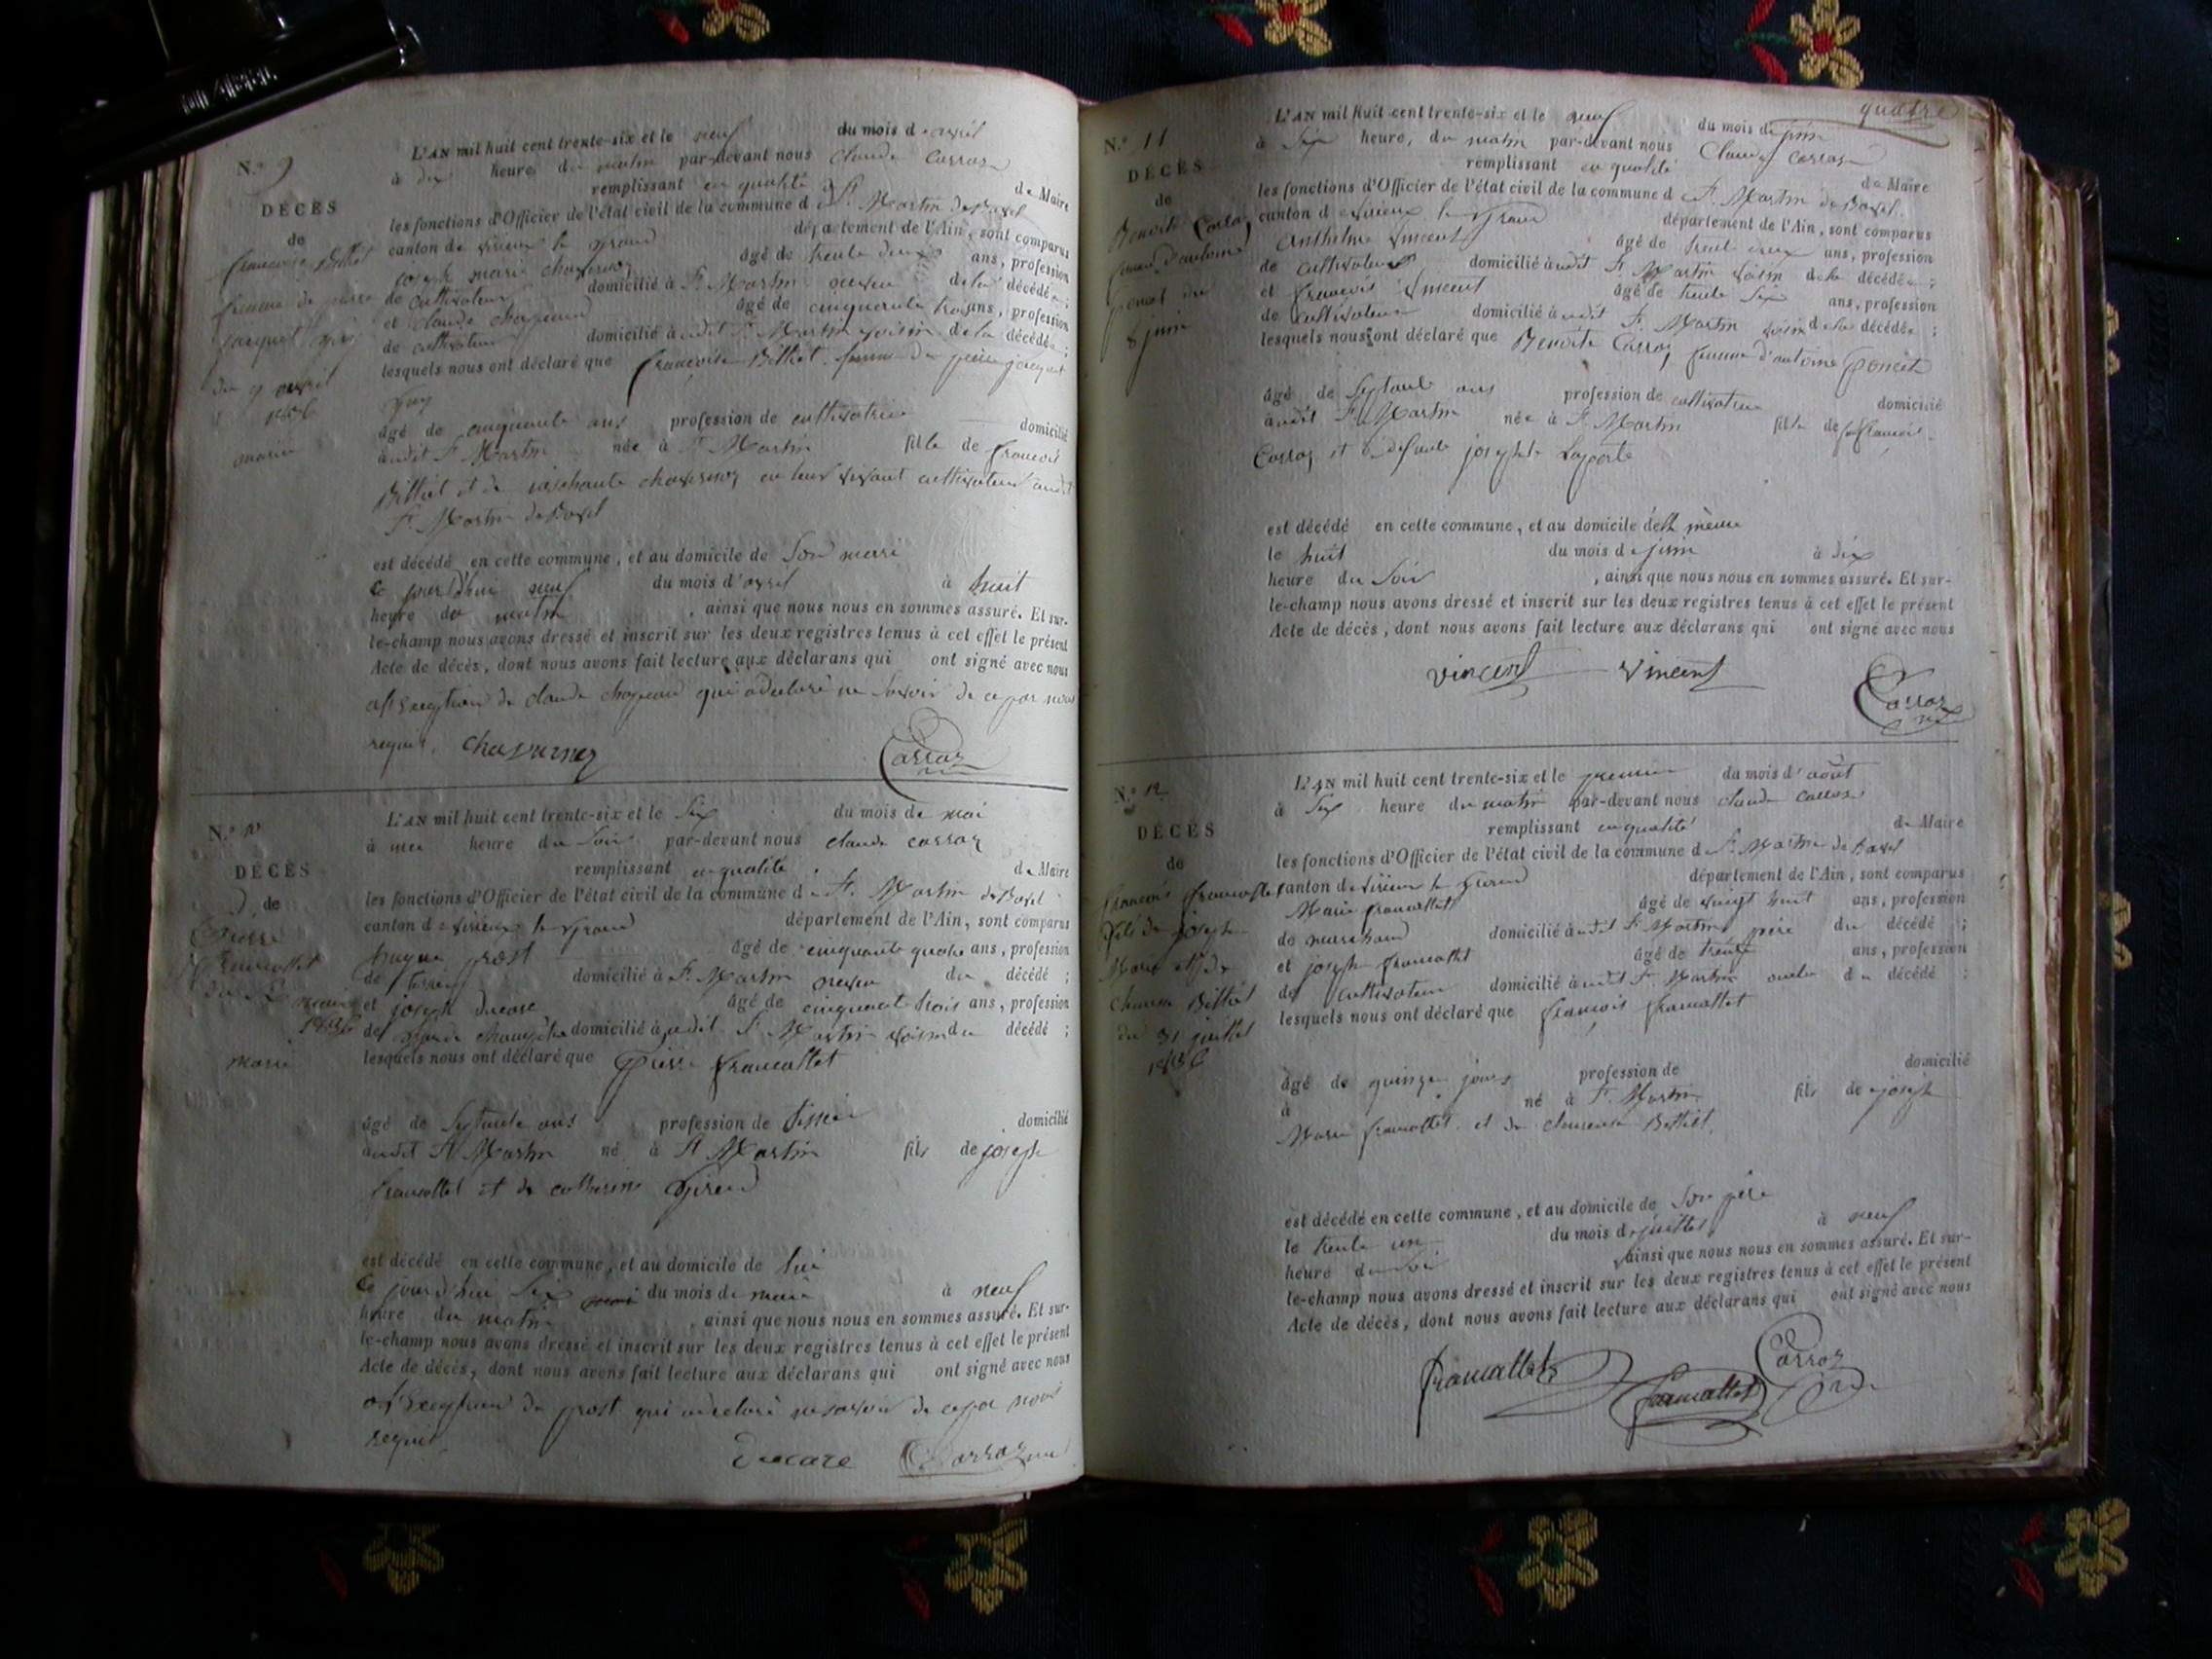 N.° 9
DÉCÈS
de
francoise Bettiet
femme de pierre
jacquet guy
du 9 avril
1836
L'AN mil huit cent trente-six et le neuf du mois d'avril
à dix heure du matin par-devant nous claude Carroz
remplissant en qualité de Maire
les fonctions d'Officier de l'état civil de la commune de St. Martin de Bavel
canton de virieux le grand département de l'Ain, sont comparus
joseph marie chavernoz âgé de trente deux ans, profession
de cultivateur domicilié à St. Martin neveu de la décédée;
et claude chapeau âgé de cinquante trois ans, profession
de cultivateur domicilié audit St. Martin voisin de la décédée;
lesquels nous ont déclaré que francoise Bettiet femme de pierre jacquet
guy
âgé de cinquante ans profession de cultivatrice domicilié
audit St Martin née à St Martin fille de francois
Bettiet et de chavernoz en leur vivant cultivateurs audit
St. Martin de Bavel
est décédé en cette commune, et au domicile de Son mari
ce jourd'hui neuf du mois d'avril à huit
heure du matin, ainsi que nous nous en sommes assuré. Et sur-
le-champ nous avons dressé et inscrit sur les deux registres tenus à cet effet le présent
Acte de décès, dont nous avons fait lecture aux déclarans qui ont signé avec nous
a l'exception de claude chapeau qui a déclaré ne savoir de ce par nous
requis. chavernoz Carroz
N.° 10
DÉCÈS
de
Pierre
francallet
du 6
1836
L'AN mil huit cent trente-six et le Six du mois de mai
à heure du Soir par-devant nous claude carroz
remplissant en qualité de Maire
les fonctions d'Officier de l'état civil de la commune de St. Martin de Bavel
canton de virieux le grand département de l'Ain, sont comparus
hugue prost âgé de cinquante quatre ans, profession
de domicilié à St. Martin neveu du décédé;
et joseph ducare âgé de cinquante trois ans, profession
de garde champêtre domicilié audit St. Martin voisin du décédé;
lesquels nous ont déclaré que pierre francallet
âgé de Septante ans profession de tissier domicilié
audit St Martin né à St Martin fils de joseph
francallet et de catherine
est décédé en cette commune, et au domicile de lui
ce jourd'hui Six du mois de mai à neuf
heure du matin, ainsi que nous nous en sommes assuré. Et sur-
le-champ nous avons dressé et inscrit sur les deux registres tenus à cet effet le présent
Acte de décès, dont nous avons fait lecture aux déclarans qui ont signé avec nous
a l'exception de prost qui a déclaré ne savoir de ce par nous
requis.
Ducare Carroz
quatre
N.° 11
DÉCÈS
de
Benoite Carroz
femme d'antoine
poncet du
8 juin
L'AN mil huit cent trente-six et le neuf du mois de juin
à Six heure, du matin par-devant nous Claude carroz
remplissant en qualité de Maire
les fonctions d'Officier de l'état civil de la commune de St. Martin de Bavel
canton de virieux le grand département de l'Ain, sont comparus
Anthelme Vincent âgé de trente ans, profession
de cultivateur domicilié audit St Martin voisin de la décédée;
et francois Vincent âgé de trente Six ans, profession
de cultivateur domicilié audit St. Martin voisin de la décédée;
lesquels nous ont déclaré que Benoite Carroz femme d'antoine poncet
âgé de Septante ans profession de cultivatrice domicilié
audit St Martin née à St Martin fille de francois
Carroz et défunte josephte Laporte
est décédé en cette commune, et au domicile d'elle même
le huit du mois de juin à dix
heure du Soir, ainsi que nous nous en sommes assuré. Et sur-
le-champ nous avons dressé et inscrit sur les deux registres tenus à cet effet le présent
Acte de décès, dont nous avons fait lecture aux déclarans qui ont signé avec nous
vincent Vincent Carroz
N.° 12
DÉCÈS
de
francois francallet
fils de joseph
Marie et de
Bettiet
du 31 juillet
1836
L'AN mil huit cent trente-six et le premier du mois d'août
à Six heure du matin par-devant nous claude carroz
remplissant en qualité de Maire
les fonctions d'Officier de l'état civil de la commune de St. Martin de Bavel
canton de virieux le grand département de l'Ain, sont comparus
Marie francallet âgé de vingt huit ans, profession
de marchand domicilié audit St Martin père du décédé;
et joseph francallet âgé de trente ans, profession
de cultivateur domicilié audit St. Martin oncle du décédé;
lesquels nous ont déclaré que francois francallet
âgé de quinze jours profession de domicilié
à né à St. Martin fils de joseph
Marie francallet et de Bettiet
est décédé en cette commune, et au domicile de Son père
le trente un du mois de juillet à neuf
heure du soir, ainsi que nous nous en sommes assuré. Et sur-
le-champ nous avons dressé et inscrit sur les deux registres tenus à cet effet le présent
Acte de décès, dont nous avons fait lecture aux déclarans qui ont signé avec nous
francallet francallet Carroz